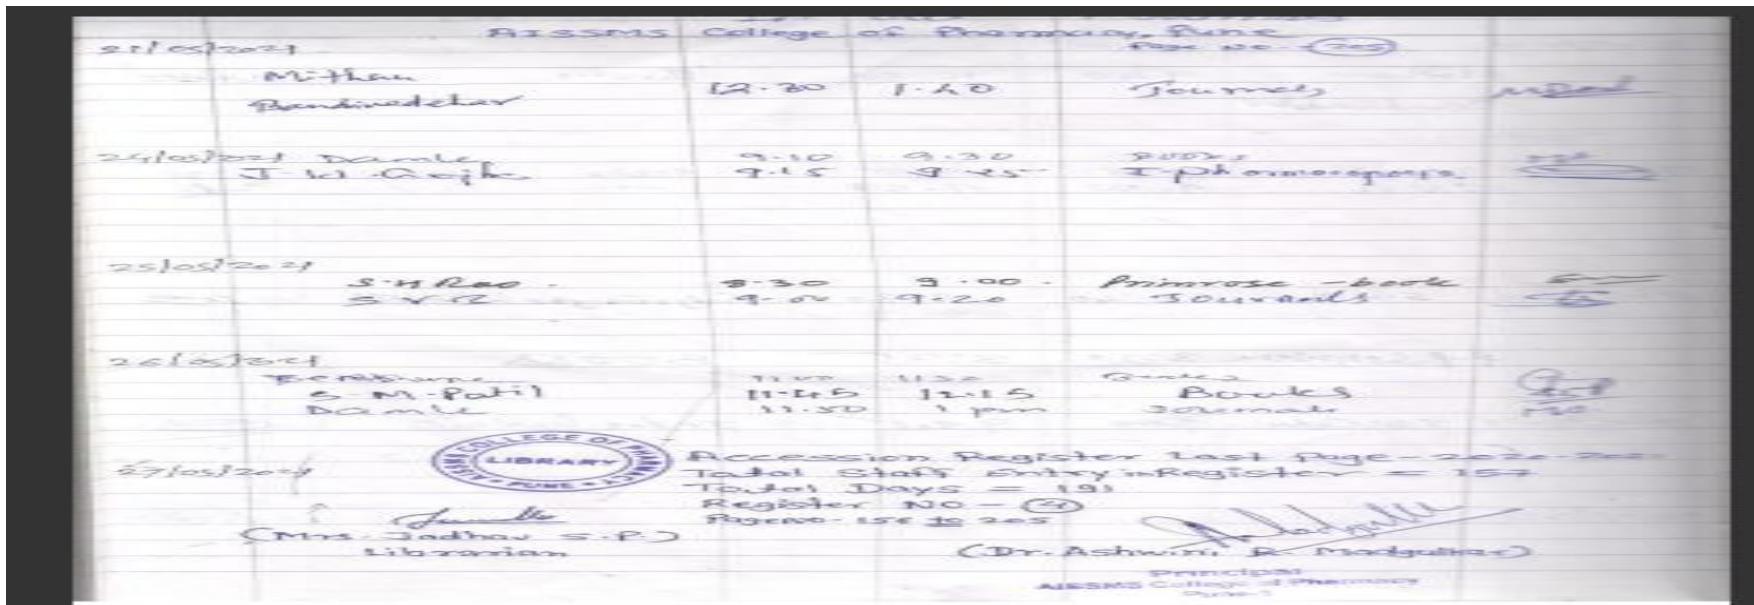 AISSMS College of Pharmacy, Pune
21/05/2021 Page No - 205
Mithun
12.30 1.40 Journals
24/05/2021 Damle 9.10 9.30 Books
9.15 9.25 I. Pharmacopoeia
25/05/2021
S.H Rao. 8.30 9.00. Primrose - book
S V R 9.00 9.20 Journals
26/05/2021
11.00 11.30 Books
S. M. Patil 11.45 12.15 Books
Damle 11.50 1 pm Journals
27/05/2021
AISSMS COLLEGE OF PHARMACY
LIBRARY
PUNE
Accession Register Last Page - 2020-
Total Staff Entry in Register = 157
Total Days = 191
Register No - 4
Page no - 156 to 205
(Mrs. Jadhav S. P.)
Librarian
(Dr. Ashwini R. Madgulkar)
Principal
AISSMS College of Pharmacy